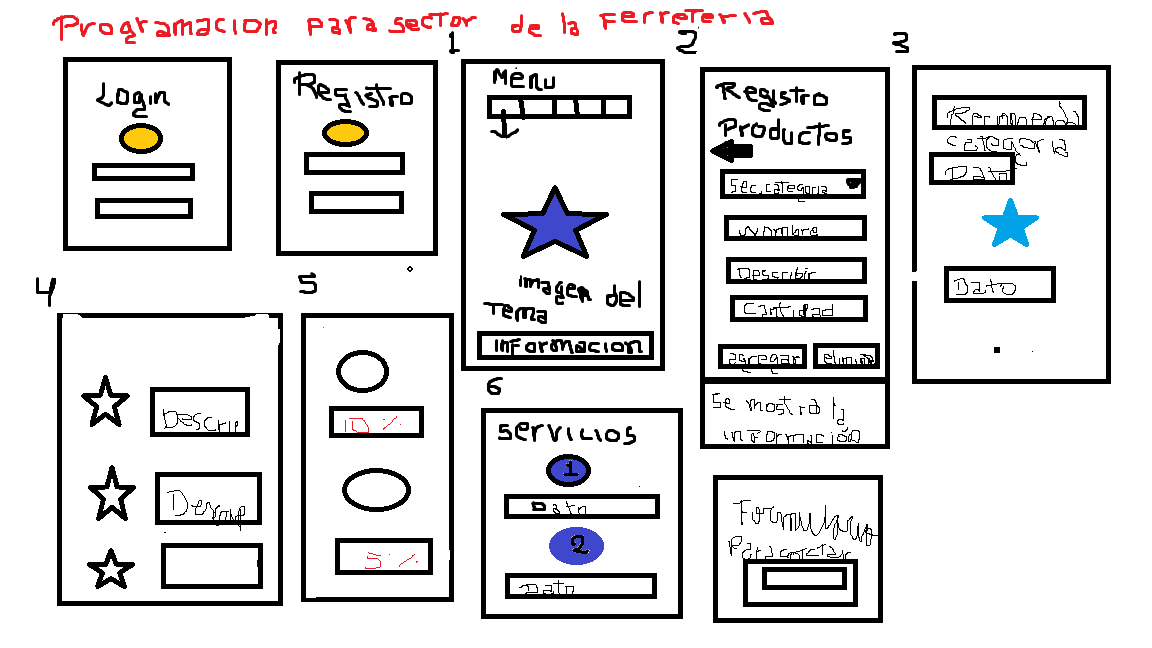 Programacion para sector de la Ferreteria
Login
Registro
1
Menu
imagen del
Tema
informacion
2
Registro
Productos
Sec.categoria
Nombre
Describir
Cantidad
agregar
Se mostra la
información
3
categoria
Dato
Dato
4
Descrip
5
10 %
5 %
6
Servicios
1
Dato
2
Dato
Formulario